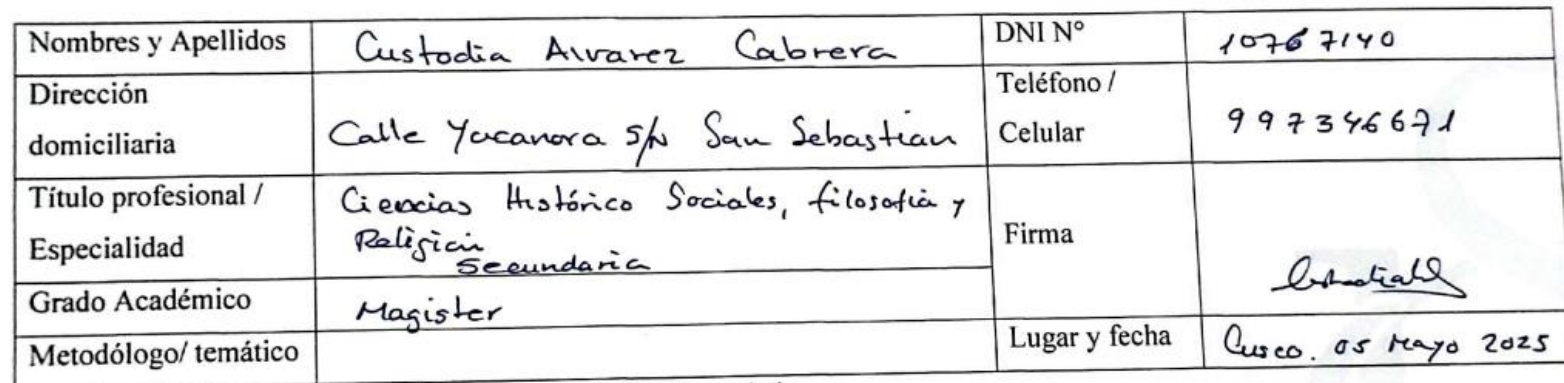 Nombres y Apellidos Custodia Alvarez Cabrera DNI N° 10767140
Dirección domiciliaria Calle Yucanora S/N San Sebastian Teléfono / Celular 997346671
Título profesional / Especialidad Ciencias Histórico Sociales, filosofia y
Religión
Secundaria
Firma
Grado Académico Magister
Metodólogo/ temático Lugar y fecha Cusco. 05 Mayo 2025